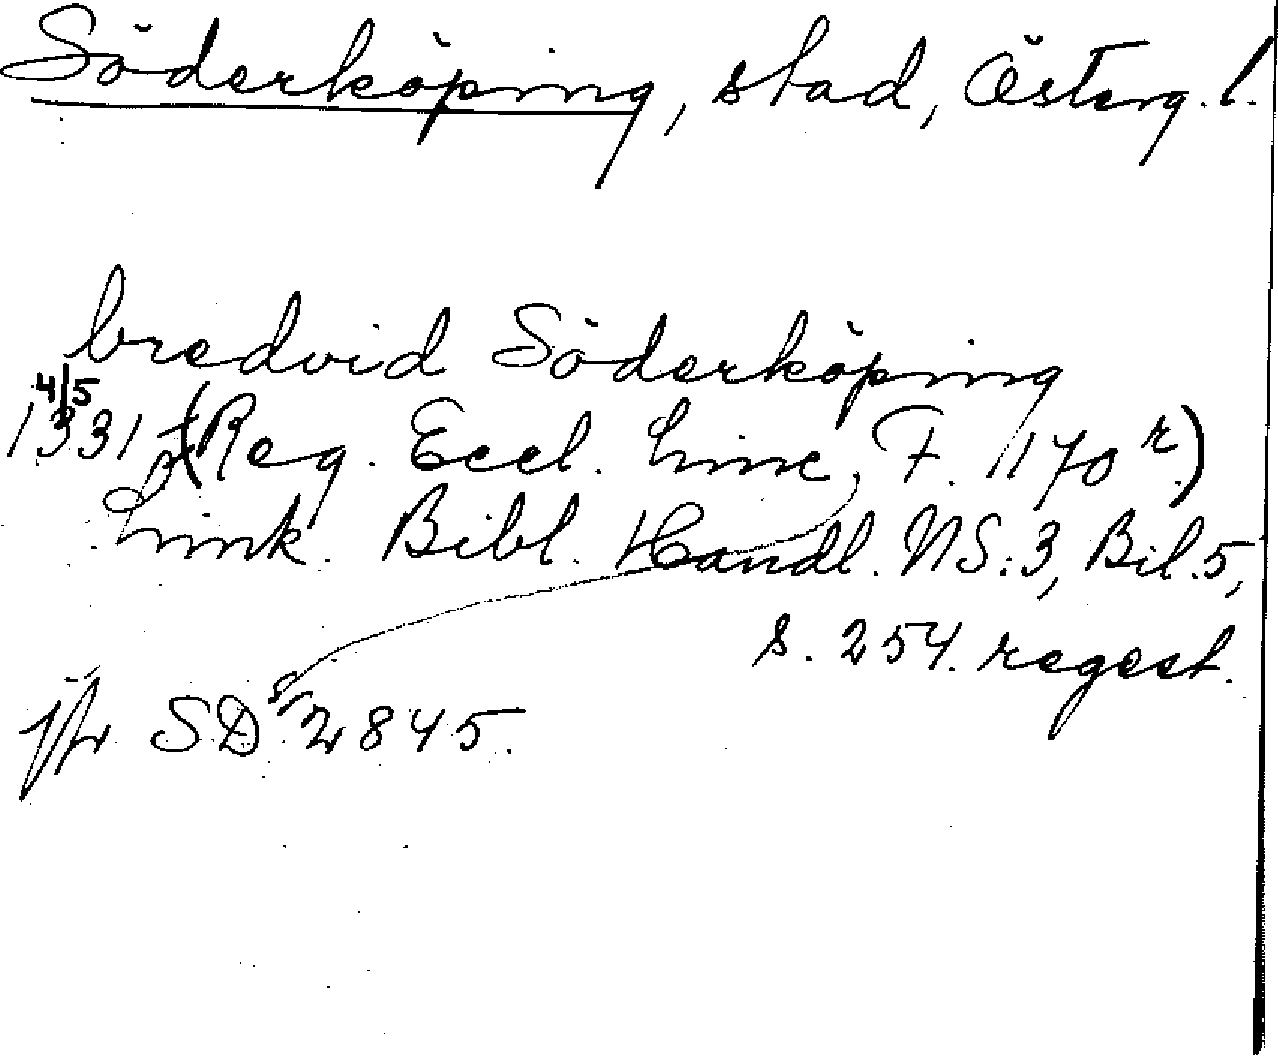 Söderköping, stad, Österg. l.
bredvid Söderköping
4/5
1331 (Reg. Eccl. Linc, F. 170 r.)
Link. Bibl. Handl. NS:3, Bil.5,
s. 254. regest.
jfr SD 2845.